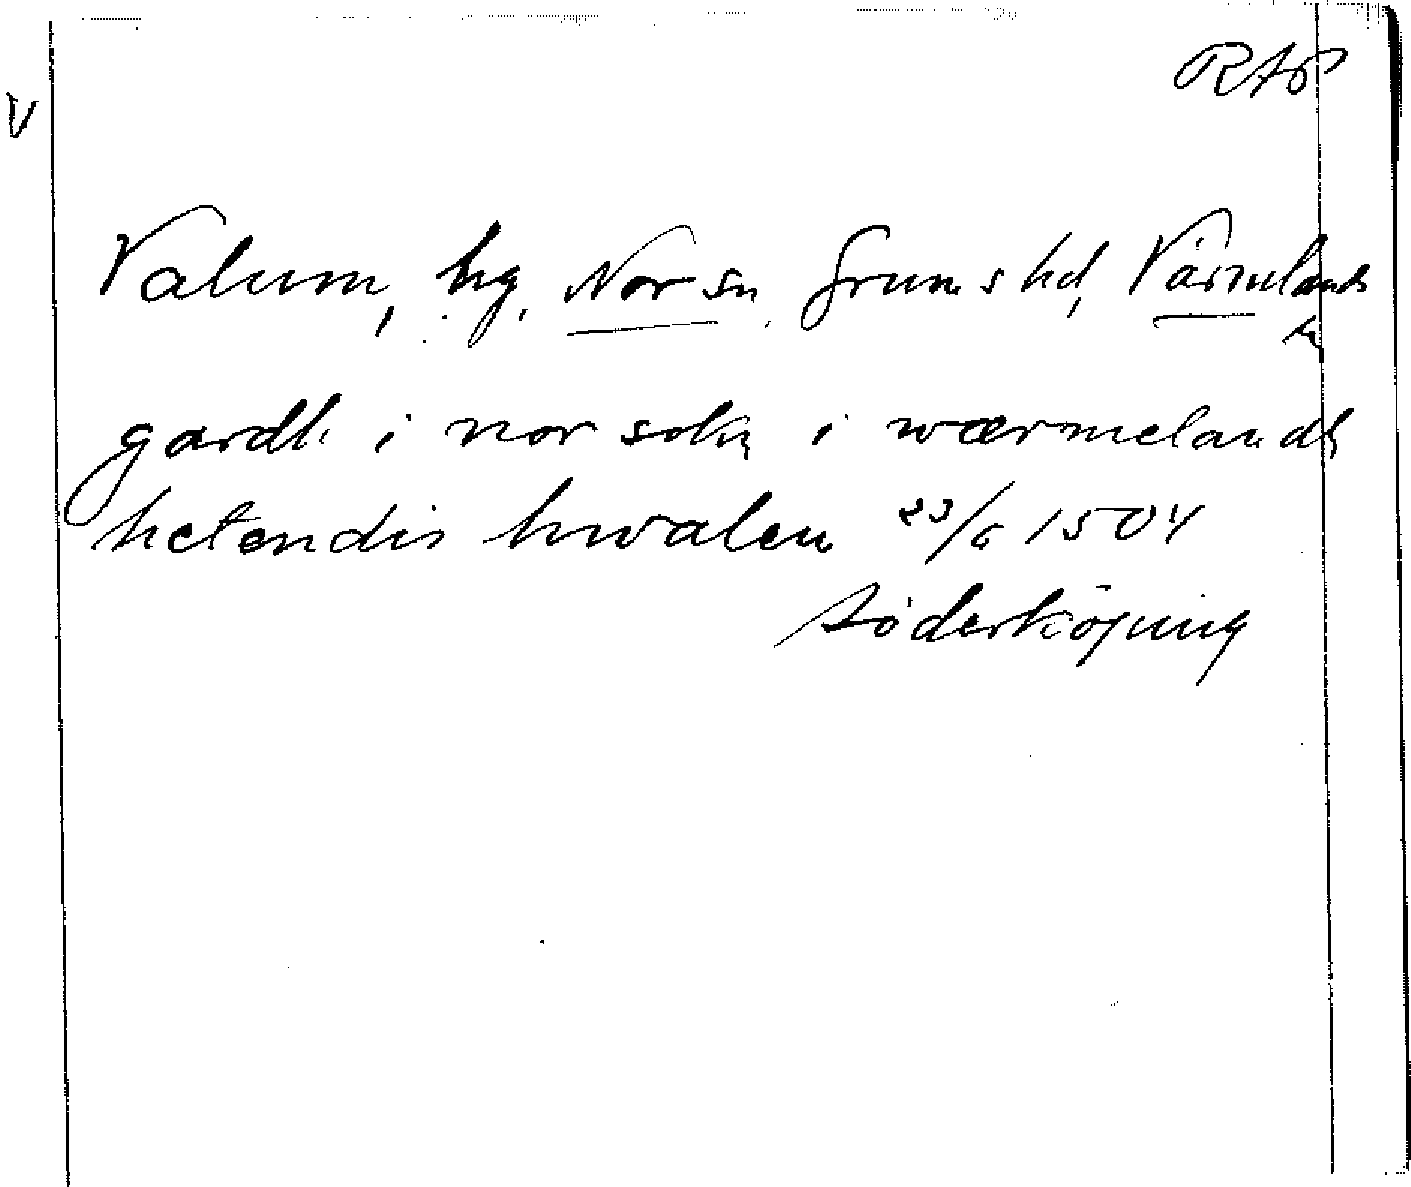 RAP
V
Valum, hg, Nor sn, Grums hd, Värmlands
ln
gardh i nor sokn i wærmelandh
hetendis hwalen 23/6 1504
Söderköping